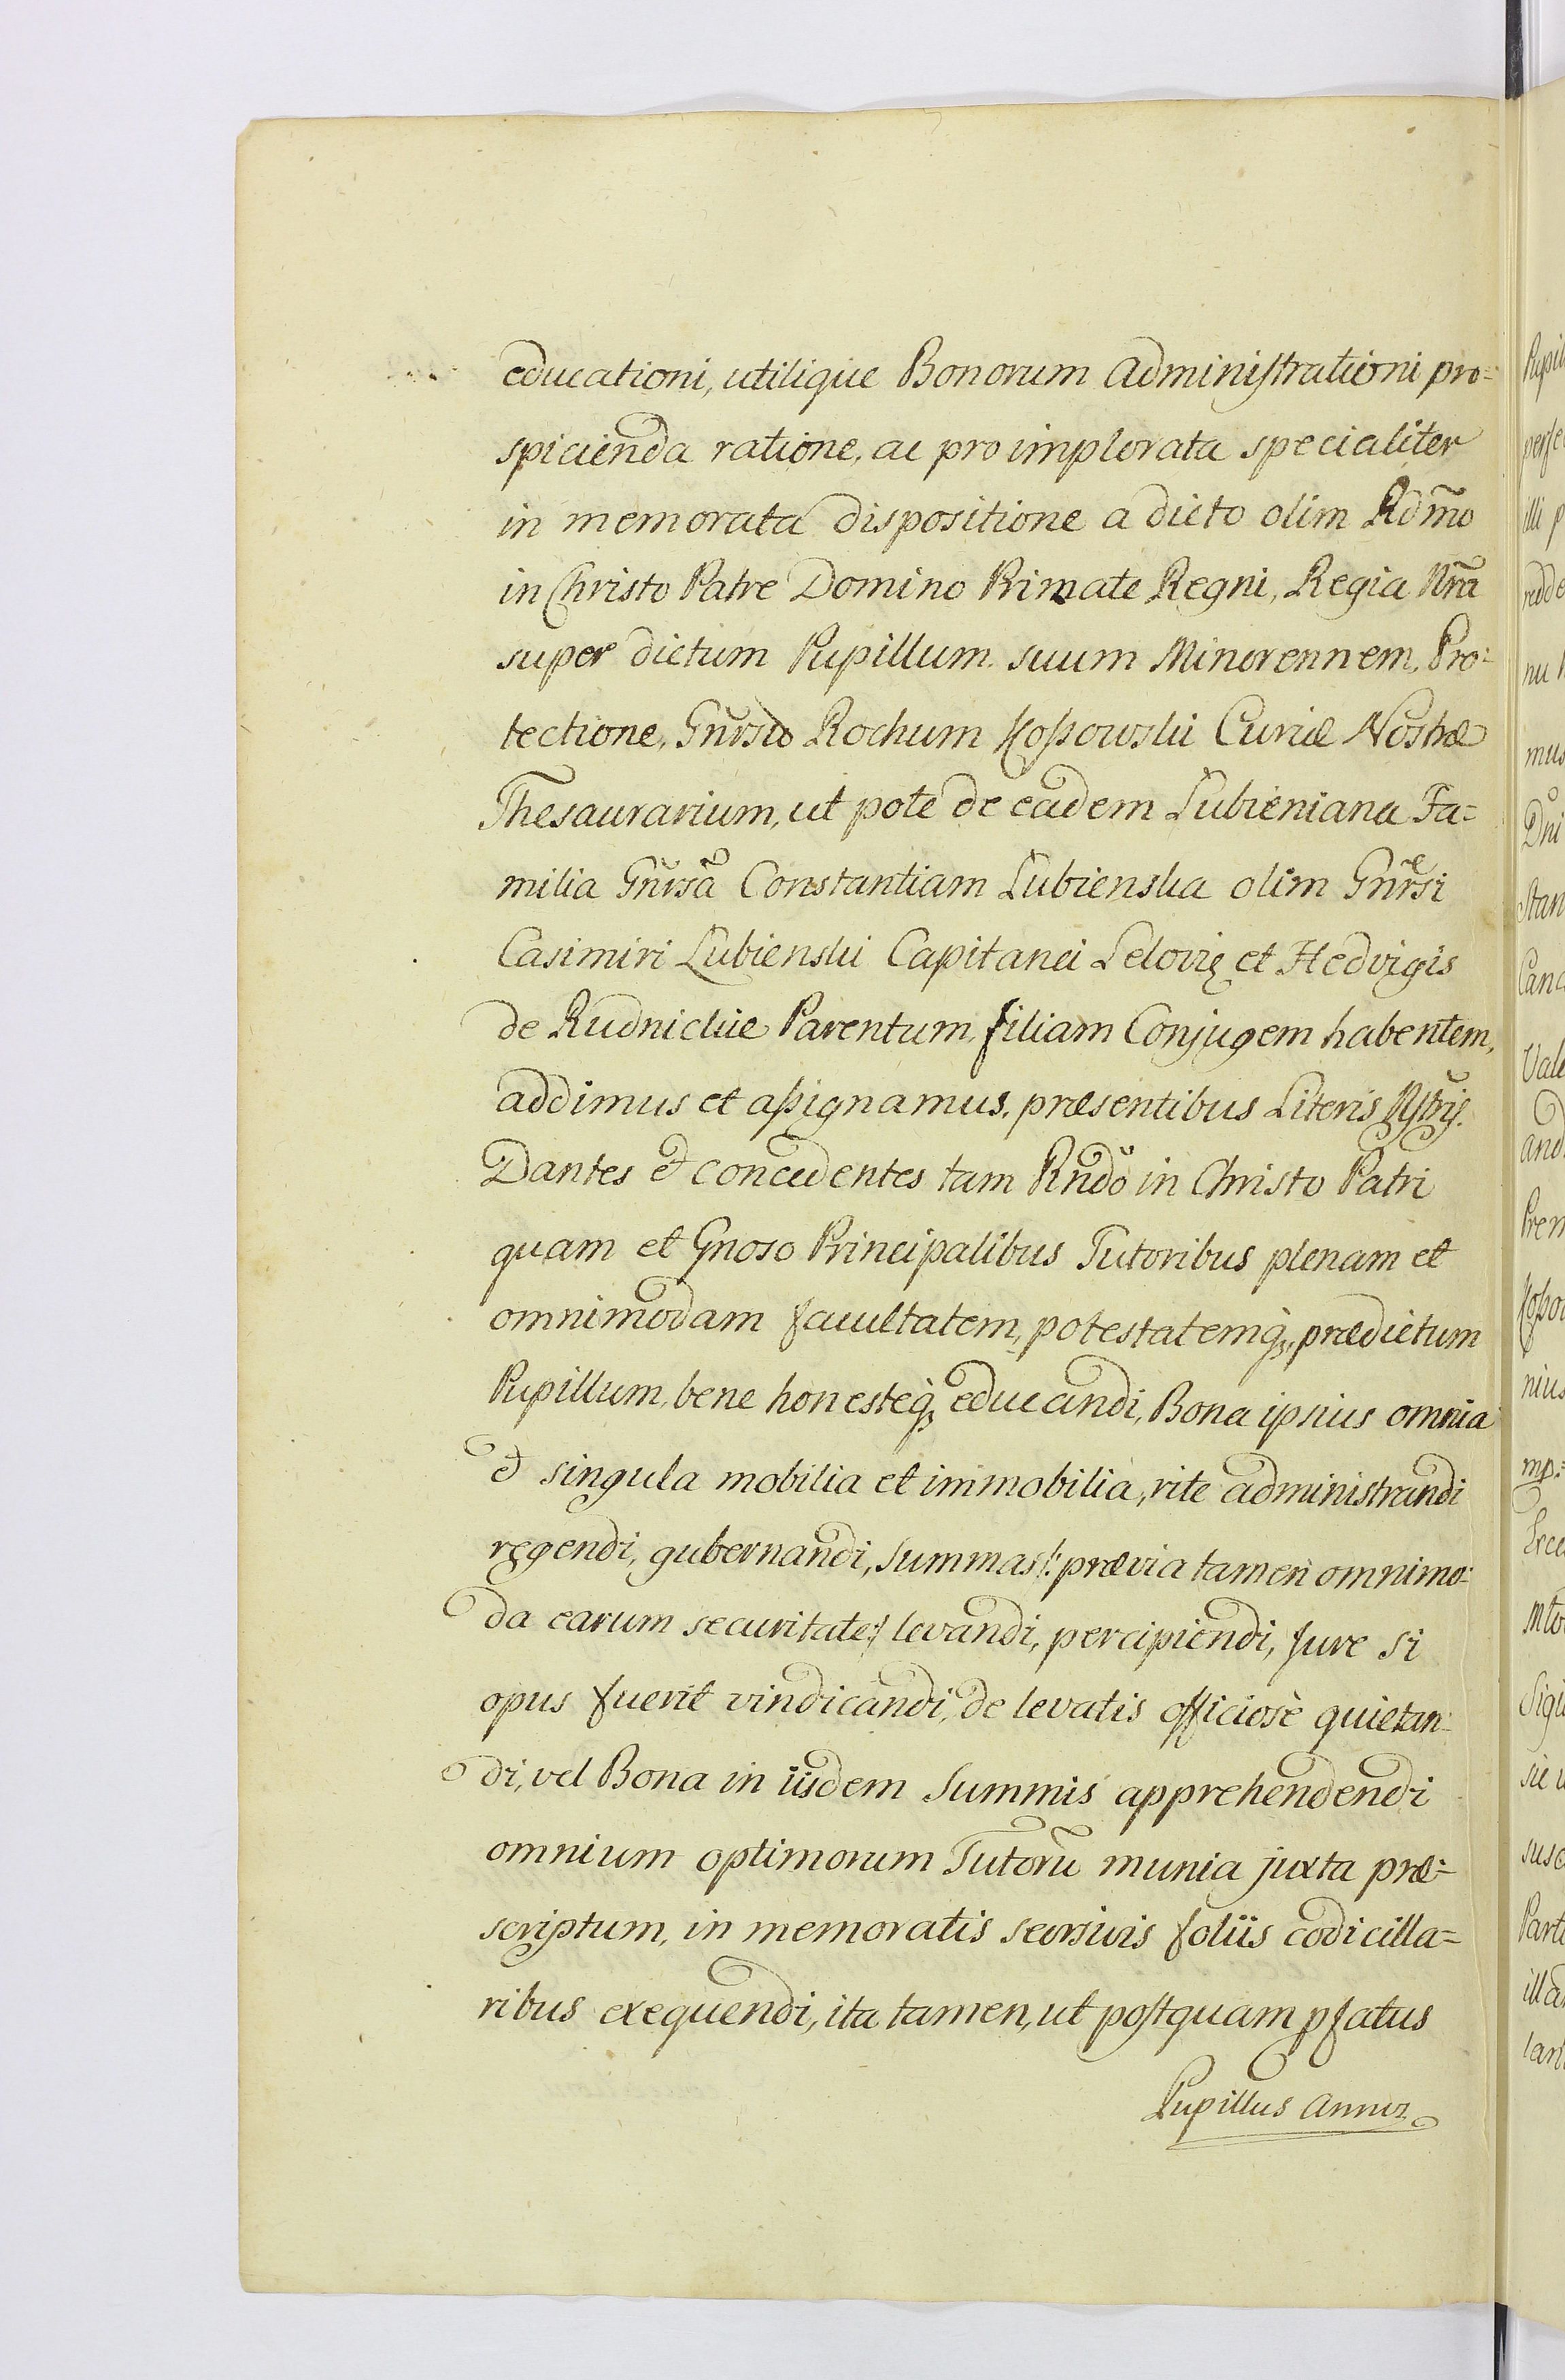 educationi, utilique Bonorum administrationi pro=
spicienda ratione, ac pro implorata specialiter
in memorata dispositione a dicto olim Rdm̃o
in Christo Patre Domino Primate Regni, Regia Nrã
super dictum Pupillum suum Minorennem, Pro=
tectione, Gnrsũ Rochum Koſsowski Curiæ Nostræ
Thesaurarium, ut pote de eadem Lubieniana Fa=
milia Gnrsã Constantiam Lubienska olim Gnrsi
Casimiri Lubienski Capitanei Lelovię et Hedvigis
de Rudnickie Parentum, filiam Conjugem habentem,
addimus et aſsignamus, præsentibus Literis Nſtrĩs.
Dantes et concedentes tam Rndõ in Christo Patri
quam et Gnoso Principalibus Tutoribus plenam et
omnimodam facultatem, potestatemq́ꝫ, prædictum
Pupillum, bene honesteq́ꝫ educandi, Bona ipsius omnia
et singula mobilia et immobilia, rite administrandi
regendi, gubernandi, Summas /: prævia tamen omnimo=
da earum securitate :/ levandi, percipiendi, Jure si
opus fuerit vindicandi, de levatis officiosè quietan=
di, vel Bona in iisdem Summis apprehendendi
omnium optimorum Tutorũ munia juxta præ=
scriptum, in memoratis seorsivis foliis codicilla=
ribus exequendi, ita tamen, ut poſtquam pfatus
Pupillus annoꝝ